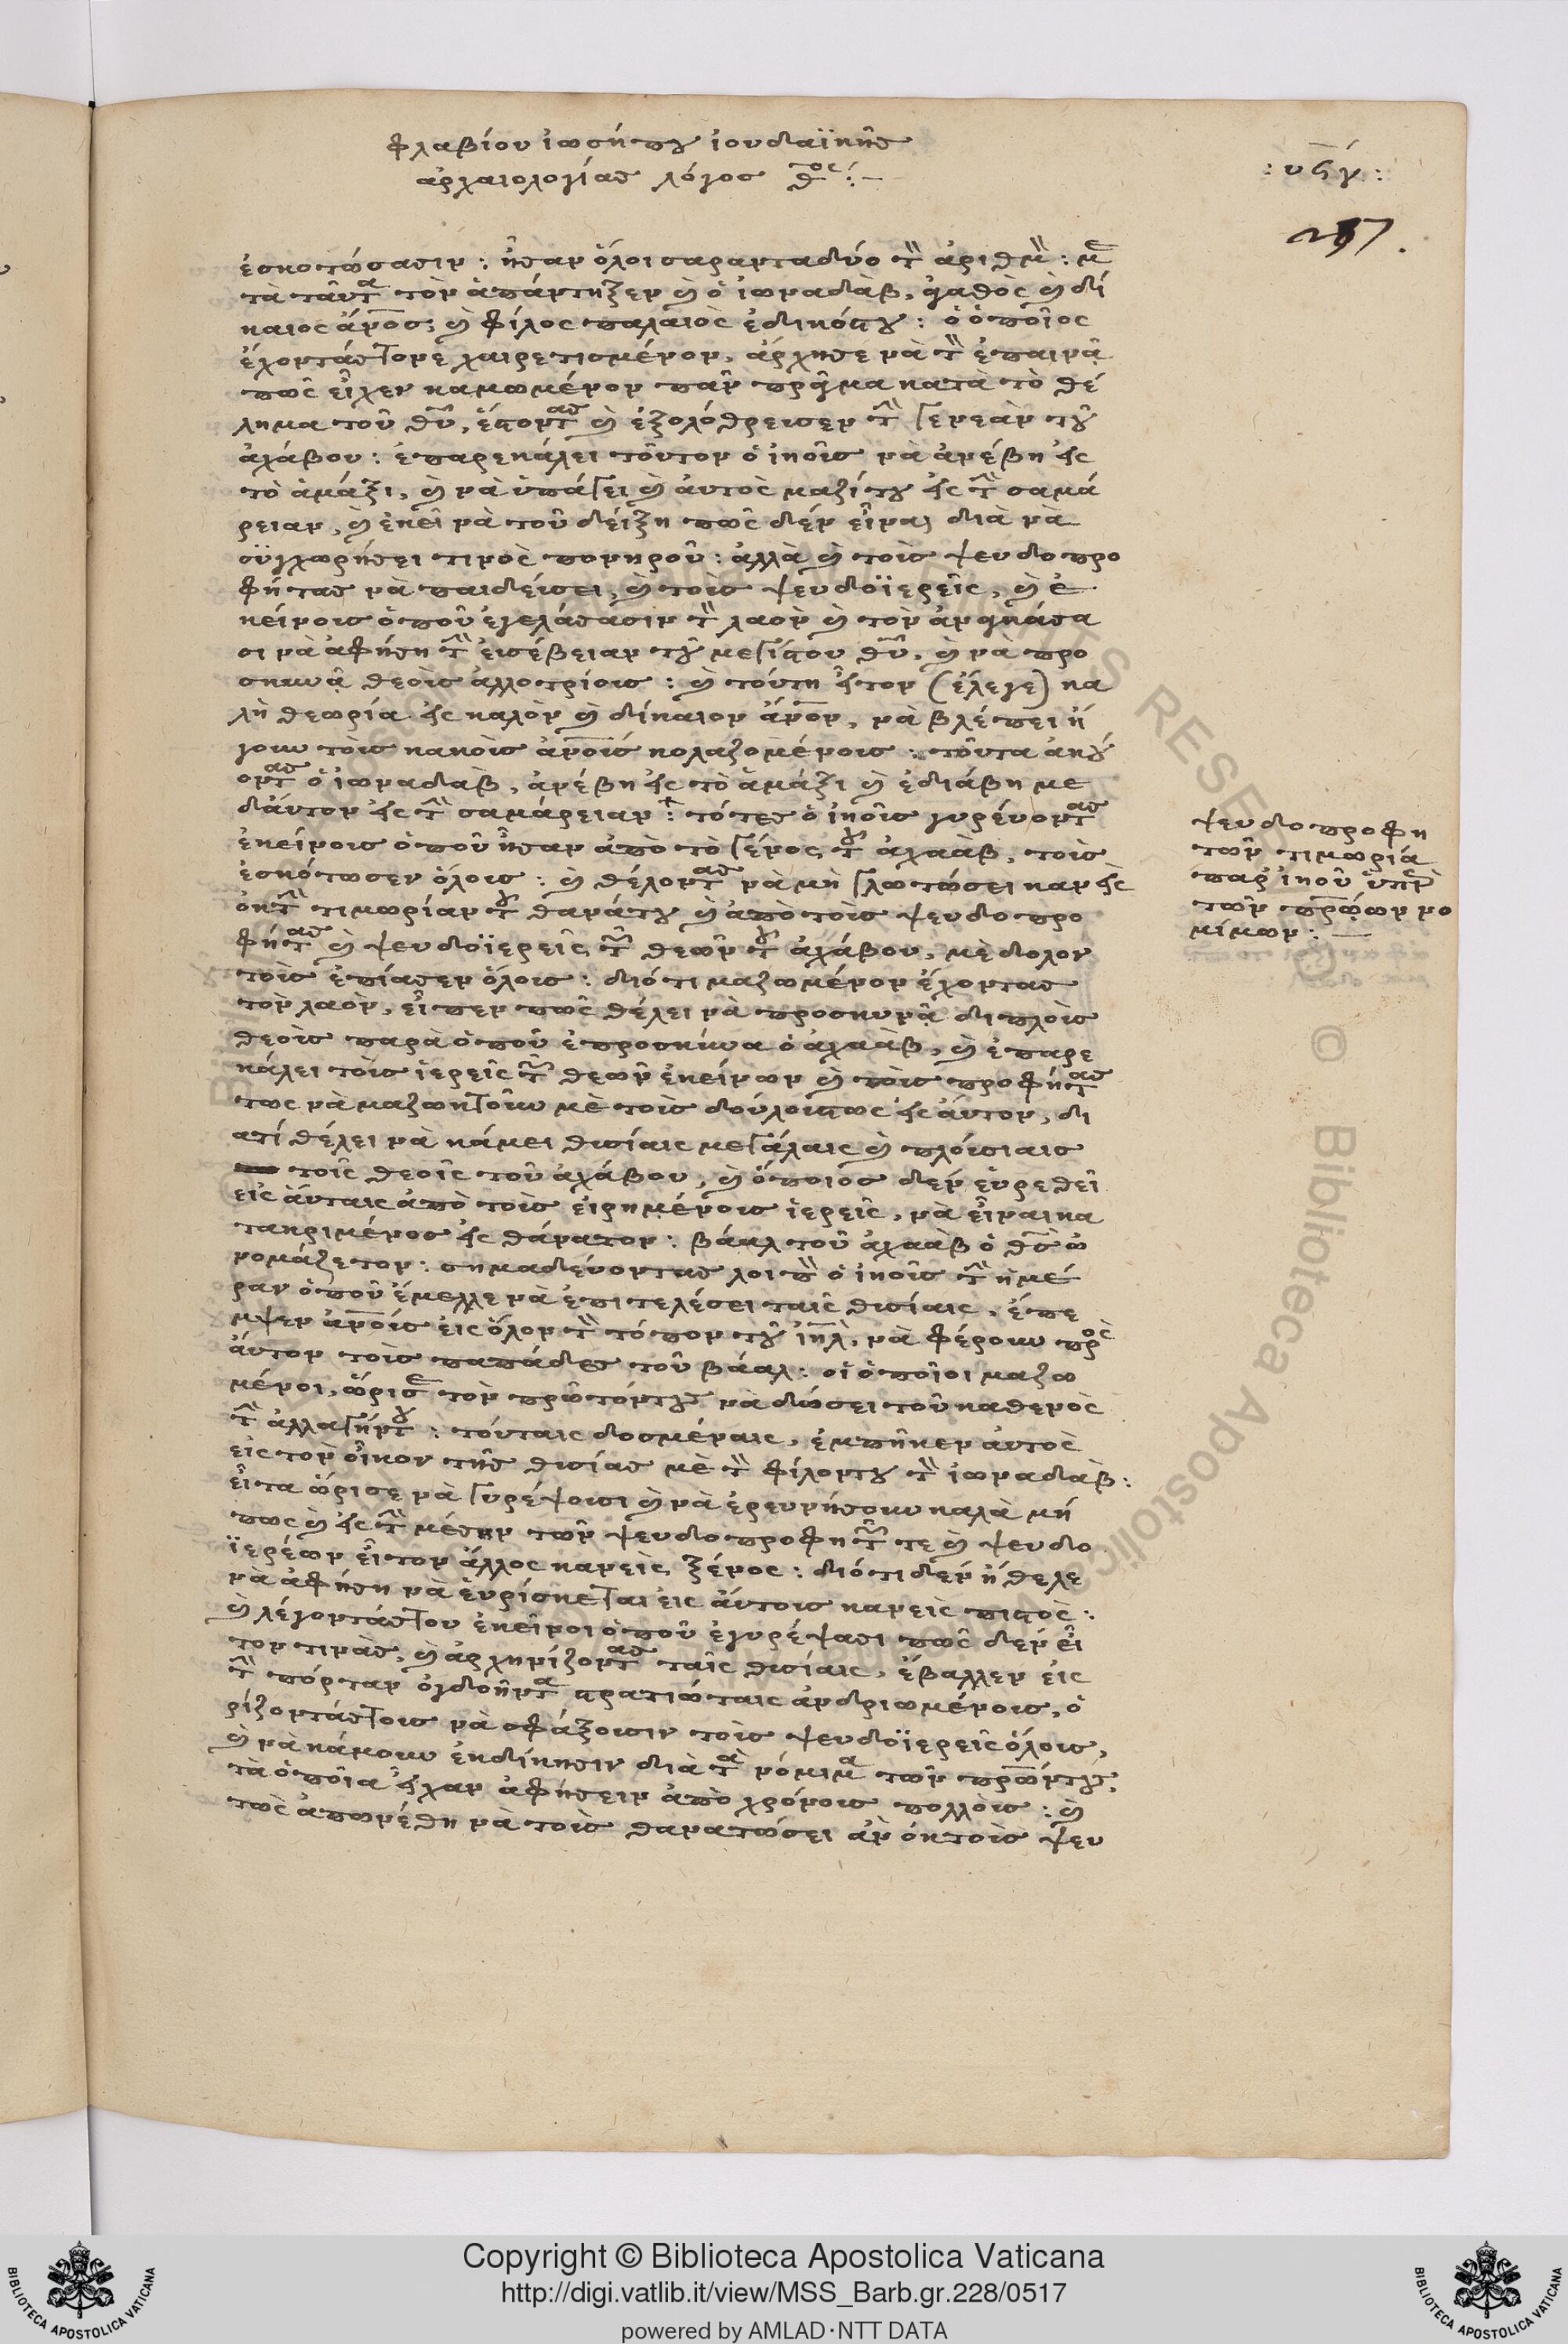 φλαβίου ἰωσήπου ἰουδαϊκῆς
ἀρχαιολογίας λόγος θος :—
: υϟγ :
257.
ἐσκοτώσασιν : ἦσαν ὅλοι σαρανταδύο τὸν ἀριθμὸν : με
τὰ ταῦτα τὸν ἀπάντηξεν καὶ ὁ ἰωναδὰβ, ἀγαθὸς καὶ δί
καιος ἄνος; καὶ φίλος παλαιὸς ἐδικότου : ὁ ὁποῖος
ἔχοντάς τονε χαιρετισμένον, ἄρχησε νὰ τὸν ἐπαινᾶ
πῶς εἶχεν καμωμένον πᾶν πρᾶγμα κατὰ τὸ θέ
λημα τοῦ θῦ, ἔστοντας καὶ ἐξολόθρεισεν τὴν γενεὰν τοῦ
ἀχάβου : ἐπαρεκάλει τοῦτον ὁ ἰηοῦς νὰ ἀνέβη εἰς
τὸ ἁμάξι, καὶ νὰ ὑπάγει καὶ αὐτὸς μαζί του εἰς τὴν σαμά
ρειαν, καὶ ἐκεῖ νὰ τοῦ δείξη πῶς δὲν εἶναι διὰ νὰ
συγχωρήσει τινὸς πονηροῦ : ἀλλὰ καὶ τοὺς ψευδοπρο
φήτας νὰ παιδεύσει, καὶ τοὺς ψευδοϊερεῖς, καὶ ἐ
κείνους ὁποῦ ἐγελάσασιν τὸν λαὸν καὶ τὸν ἀναγκάσα
σι νὰ ἀφήση τὴν εὐσέβειαν τοῦ μεγίστου θῦ, καὶ νὰ προ
σκυνᾶ θεοὺς ἀλλοτρίους : καὶ τούτη ἦτον (ἔλεγε) κα
λὴ θεωρία εἰς καλὸν καὶ δίκαιον ἄνον, νὰ βλέπει ἤ
γουν τοὺς κακοὺς ἀνοὺς κολαζομένους : τοῦτα ἀκού
οντας ὁ ἰωναδὰβ, ἀνέβη εἰς τὸ ἁμάξι καὶ ἐδιάβη με
δαὖτον εἰς τὴν σαμάρειαν : τότες ὁ ἰηοῦς γυρεύοντας
ἐκείνους ὁποῦ ἦσαν ἀπὸ τὸ γένος τοῦ ἀχαὰβ, τοὺς
ἐσκότωσεν ὅλους : καὶ θέλοντας νὰ μὴ γλωτώσει κἂν εἰς
ἐκ τὴν τιμωρίαν τοῦ θανάτου καὶ ἀπὸ τοὺς ψευδοπρο
φήτας καὶ ψευδοϊερεῖς τῶν θεῶν τοῦ ἀχάβου, μὲ δόλον
τοὺς ἐπίασεν ὅλους : διότι μαζωμένον ἔχοντας
τὸν λαὸν, εἶπεν πῶς θέλει νὰ προσκυνᾶ διπλοὺς
θεοὺς παρὰ ὁποῦ ἐπροσκύνα ὁ ἀχαὰβ, καὶ ἐπαρε
κάλει τοὺς ἱερεῖς τῶν θεῶν ἐκείνων καὶ τοὺς προφήτας
τως νὰ μαζωκτοῦν μὲ τοὺς δούλουςτως εἰς αὖτον, δι
ατί θέλει νὰ κάμει θυσίαις μεγάλαις καὶ πλούσιαις
τοῖς θεοῖς τοῦ ἀχάβου, καὶ ὅποιος δὲν εὑρεθεῖ
εἰς αὔταις ἀπὸ τοὺς εἰρημένους ἱερεῖς, νὰ εἶναι κα
τακριμένος εἰς θάνατον : βάαλ τοῦ ἀχαὰβ ὁ θς ὠ
νομάζετον : σημαδεύοντας λοιπὸν ὁ ἰηοῦς τὴν ἡμέ
ραν ὁποῦ ἔμελλε νὰ ἐπιτελέσει ταῖς θυσίαις, ἔπε
μψεν ἀνοὺς εἰς ὅλον τὸν τόπον τοῦ ἰηλ, νὰ φέρουν πρὸς
αὖτον τοὺς παπάδες τοῦ βάαλ : οἱ ὁποῖοι μαζω
μένοι, ὥρισε τὸν πρῶτόντου νὰ δώσει τοῦ καθενὸς
τὴν ἀλλαγήντου : τούταις δοσμέναις, ἐμπῆκεν αὐτὸς
εἰς τὸν οἶκον τῆς θυσίας μὲ τὸν φίλοντου τὸν ἰωναδὰβ :
εἶτα ὥρισε νὰ γυρέψουσι καὶ νὰ ἐρευνήσουν καλὰ μή
πως καὶ εἰς τὴν μέσην τῶν ψευδοπροφητῶν τε καὶ ψευδο
ϊερέων εἶτον ἄλλος κανεὶς ξένος : διότι δὲν ἤθελε
νὰ ἀφήση νὰ εὑρίσκεται εἰς αὔτους κανεὶς πιστὸς :
καὶ λέγοντάς του ἐκεῖνοι ὁποῦ ἐγυρέψασι πῶς δὲν εἶ
τον τινὰς, καὶ ἀρχηνίζοντας ταῖς θυσίαις, ἔβαλλεν εἰς
τὴν πόρταν ὀγδοῆντα στρατιώταις ἀνδριωμένους, ὁ
ρίζοντάς τους νὰ σφάξουσιν τοὺς ψευδοϊερεῖς ὅλους,
καὶ νὰ κάμουν ἐκδίκησιν διὰ τὰ νόμιμα τῶν προωντου,
τὰ ὁποῖα εἶχαν ἀφήσειν ἀπὸ χρόνους πολλοὺς : καὶ
τῶς ἀπωνέθη νὰ τοὺς θανατώσει ἂν ἐκ τοὺς ψευ
ψευδοπροφη
τῶν τιμωρία
παρ' ἰηοῦ ὑπὲρ
τῶν πρώων νο
μίμων : —
Copyright © Biblioteca Apostolica Vaticana
http://digi.vatlib.it/view/MSS_Barb.gr.228/0517
powered by AMLAD·NTT DATA